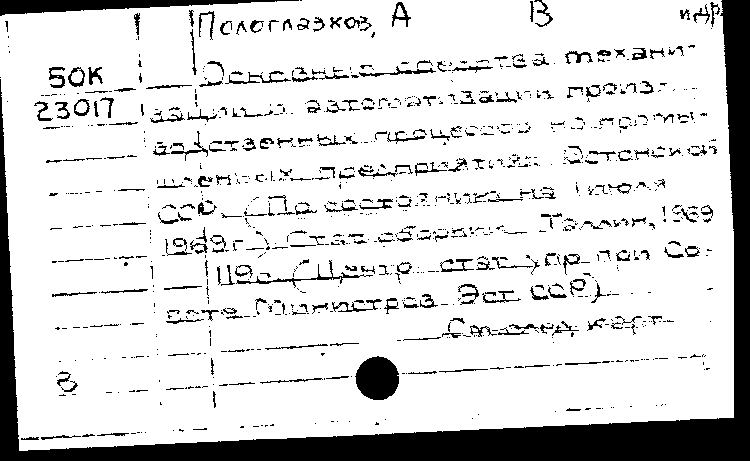 Пологлазков, А В и др.
50К Основные средства механи-
23017 зации и автоматизации произ-
водственных процессов на промы-
шленных предприятиях Эстонской
ССР. (По состоянию на 1 июля
1969 г.) Стат сборник Таллин, 1969
119с. (Центр. стат. упр. при Со-
вете Министров Эст ССР)
См след. карт.
8